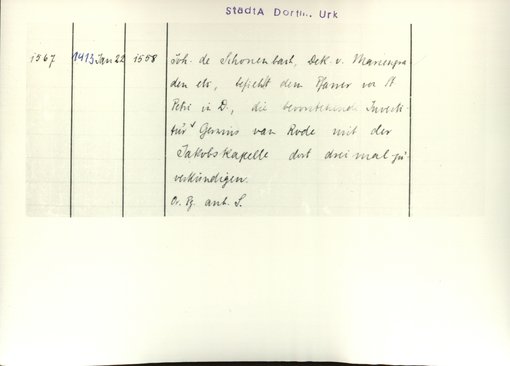 StadtA Dortm. Urk
1567 1413 Jan 22 1558 Joh. de Schonenbach, Dek. v. Mariengra-
den etc, befiehlt dem Pfarrer von St
Petri in D., die bevorstehende Investi-
tur Gerwins van Rode mit der
Jakobskapelle dort dreimal zu
verkündigen.
Or. Pg. anh. S.